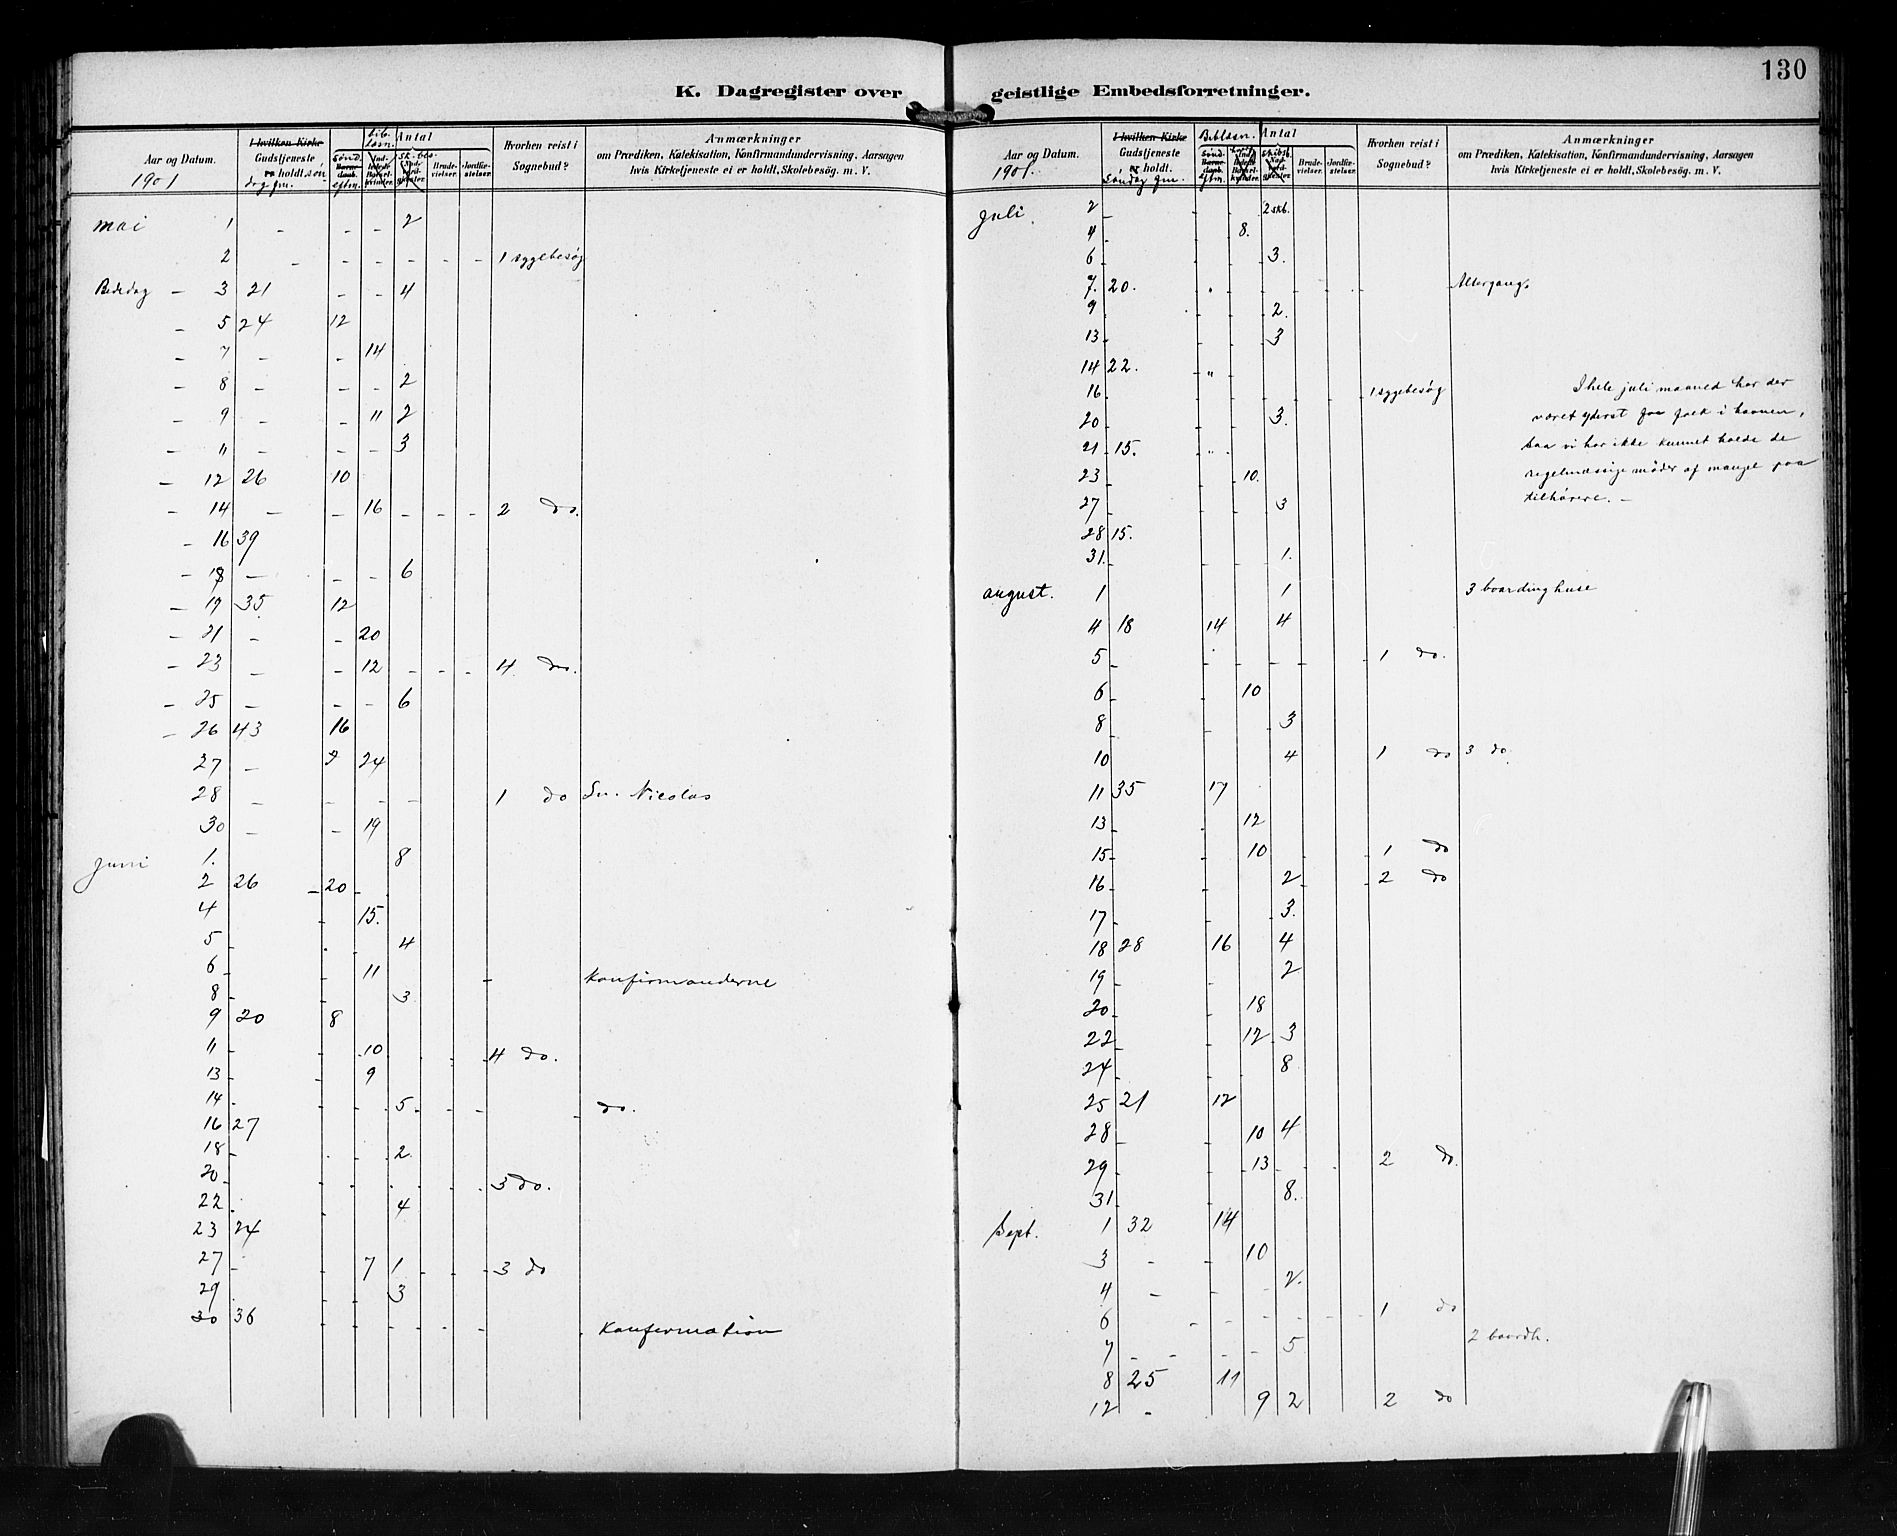 130
K. Dagregister over geistlige Embedsforretninger.
Aar og Datum. 1901
I hvilken Kirke Gudstjeneste er holdt. søndag fm.
Antal
bib. læsn. sk. bes.
Sønd. eftm.
Brudevielser. Jordfæstelser.
Hvorhen reist i Sognebud?
Anmærkninger
om Prædiken, Katekisation, Konfirmandundervisning, Aarsagen
hvis Kirketjeneste ei er holdt, Skolebesøg. m. V.
mai 1 - - - 2
2 - - - - - - 1 sygebesøg
Bededag - 3 21 - - 4
- 5 24 12
- 7 - - 14
- 8 - - - 2
- 9 - - 11 2
- 11 - - - 3
- 12 26 10
- 14 - - 16 - - - 2 do.
- 16 39
- 18 - - - 6
- 19 35 12
- 21 - - 20
- 23 - - 12 - - - 4 do.
- 25 - - - 6
- 26 43 16
27 - 24
28 - - - - 1 do Sn. Nicolas
30 - - 19
Juni 1. 8
2 26 - 20 -
4 - 15.
5 - - 4
6 - - 11 - Konfirmanderne
8 - - 3
9 20 8
11 - 10 4 do.
13 - - 9
14 - - - 5 - - - do.
16 27
18 - - - 2
20 - 3 do.
22 4
23 24
27 - - 7 1 - - - 3 do
29 - - 3
30 36 - - - - - Konfirmation
Aar og Datum. 1901.
I hvilken Kirke Gudstjeneste er holdt. Søndag fm.
Biblæsn. Antal
Sønd. eftm. skibsb.
Brudevielser. Jordfæstelser.
Hvorhen reist i Sognebud?
Anmærkninger
om Prædiken, Katekisation, Konfirmandundervisning, Aarsagen
hvis Kirketjeneste ei er holdt, Skolebesøg. m. V.
Juli 2 - 2 skb.
4 - 8.
6 - 3.
7. 20. Altergang.
9 2.
13 3
14 22. "
16 1 sygebesøg
I hele juli maaned har der
været yderst faa folk i havnen,
saa vi har ikke kunnet holde de
regelmæssige møder af mangel paa
tilhørere. -
20 3.
21 15.
23 10.
27 - 3
28 15.
31. 1.
august. 1 1 3 boardinghuse
4 18 14 4
5 - 1 do.
6 - - 10
8 - 3
10 4 1 do 3 do.
11 35 17
13 - - 12
15 - - 10 1 do
16 - - 2 2 do
17 - - 3.
18 28 16 4
19 - - 2
20 - - 18
22 - - 12 3
24 - - 8
25 21 12
28 - - 10 4
29 - - 13 2 do.
31 8.
Sept. 1 32 14
3 - - 10
4 - - - 2.
6 - - - - - - 1 do
7 - - - - 5 2 boardh.
8 25 11
12 - 9 2 2 do